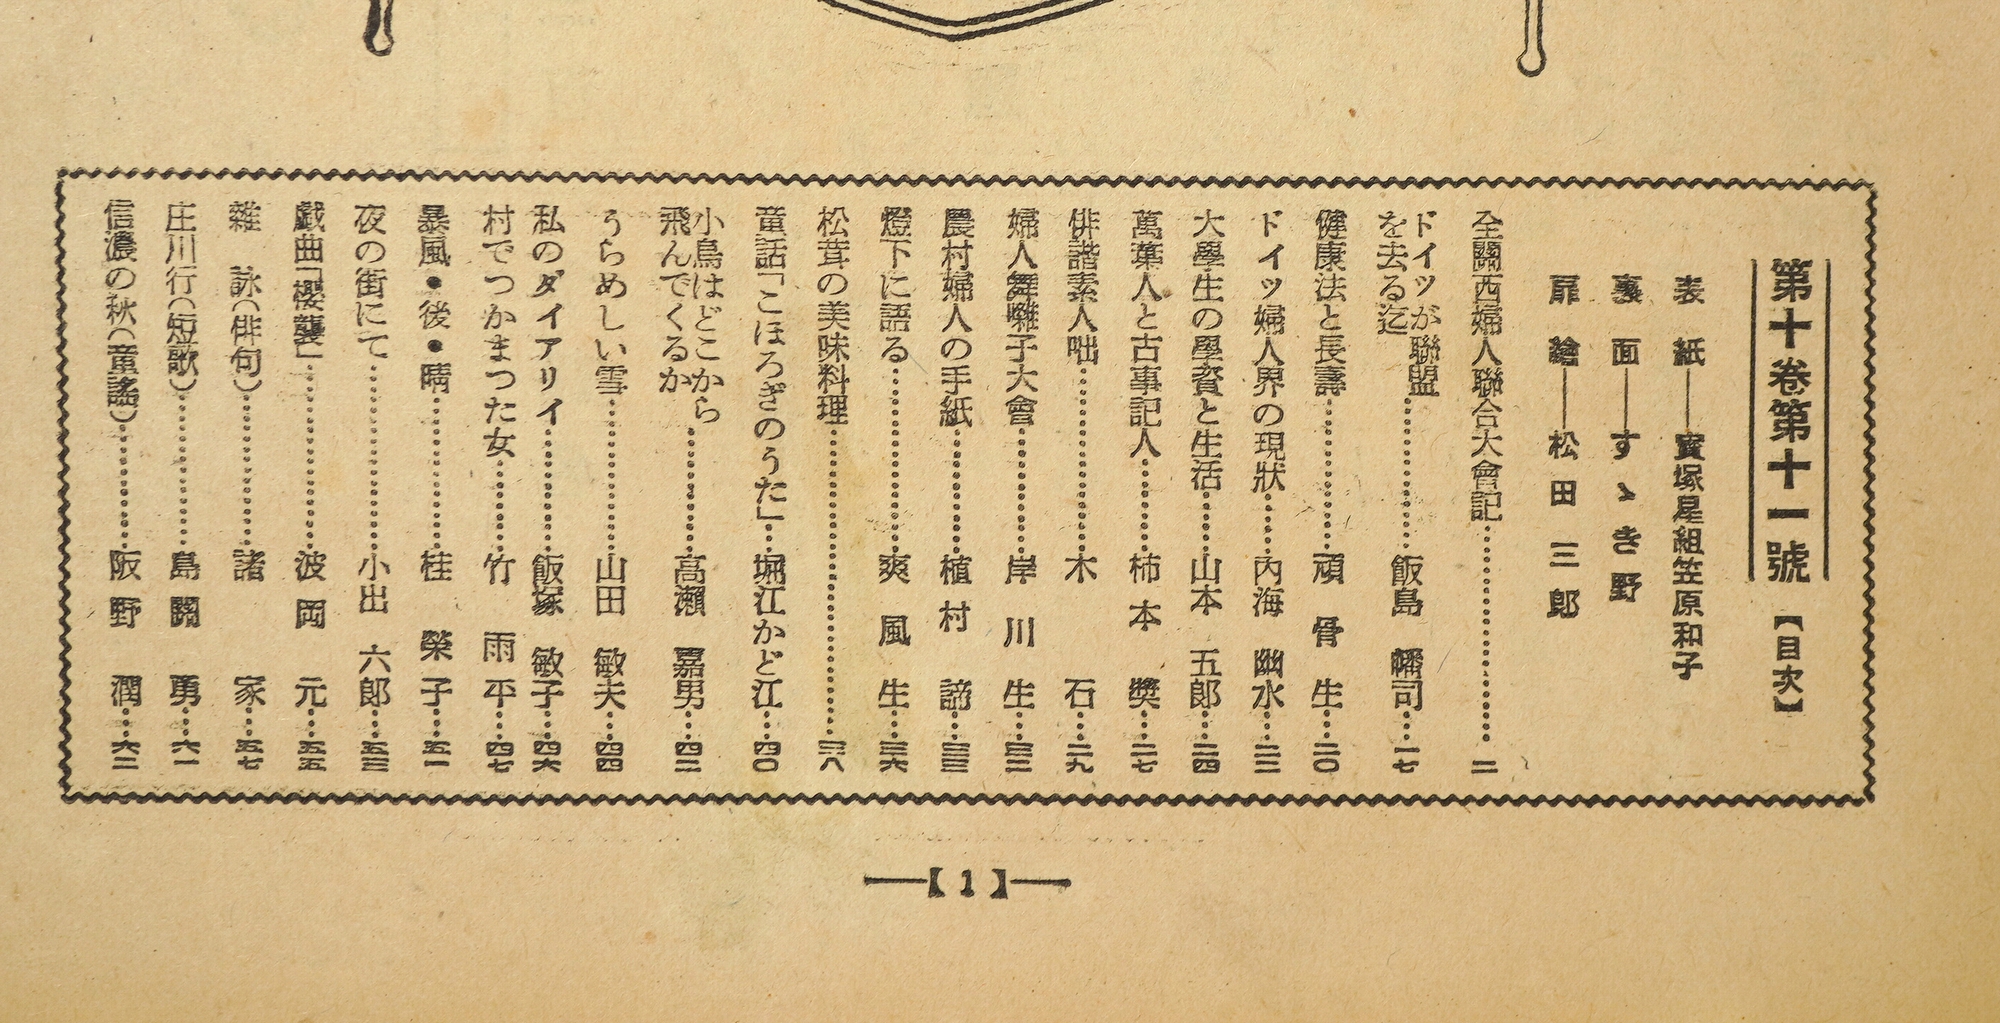 第十卷第十一號【目次】
表紙――寶塚星組笠原和子
裏面――すゝき野
扉繪――松田三郎
全關西婦人聯合大會記……二
ドイツが聯盟
を去る迄……飯島幡司……一七
健康法と長壽……頑骨生……二〇
ドイツ婦人界の現狀……內海幽水……二二
大學生の學資と生活……山本五郎……二四
萬葉人と古事記人……柿本奬……二七
俳諧素人咄……木石……二九
婦人舞囃子大會……岸川生……三二
農村婦人の手紙……植村諦……三三
燈下に語る……爽風生……三六
松茸の美味料理……三八
童話「こほろぎのうた」……堀江かど江……四〇
小鳥はどこから
飛んでくるか……高瀨嘉男……四二
うらめしい雪……山田敏夫……四四
私のダイアリイ……飯塚敏子……四六
村でつかまつた女……竹雨平……四七
暴風・後・晴……桂榮子……五一
夜の街にて……小出六郎……五三
戯曲「櫻襲」……波岡元……五五
雜詠(俳句)……諸家……五七
庄川行(短歌)……島關勇……六一
信濃の秋(童謠)……阪野潤……六二
【1】